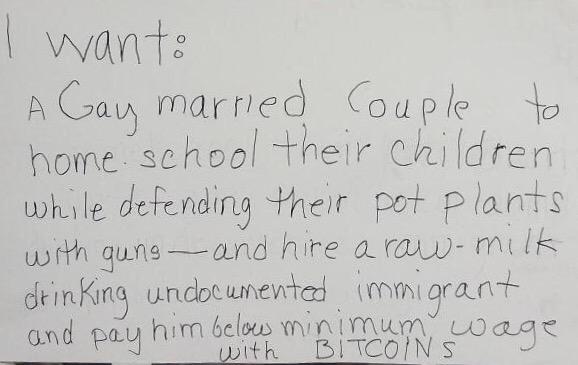 I want:
A Gay married Couple to
home school their children
while defending their pot plants
with guns—and hire a raw-milk
drinking undocumented immigrant
and pay him below minimum wage
with BITCOINS